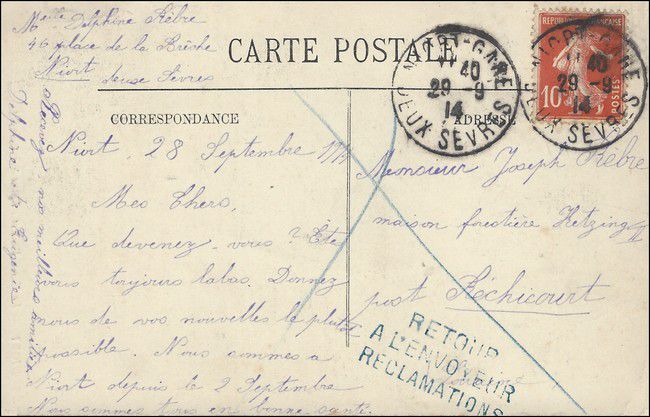 Melle Delphine Rèbre
46 place de la Brèche
Niort deux Sèvres
CARTE POSTALE
REPUBLIQUE FRANÇAISE
10
POSTES
NIORT-GARE
40
29-9
14
DEUX SEVRES
NIORT-GARE
40
29-9
14
DEUX SEVRES
CORRESPONDANCE
ADRESSE
Niort, 28 Septembre 1914
Mes Chers,
Que devenez-vous ? Êtes
vous toujours labas. Donnez
nous de vos nouvelles le plutôt
possible. Nous sommes a
Niort depuis le 2 Septembre
Nous sommes tous en bonne santé.
Recevez nos meilleures amitiés
Delphine
Monsieur Joseph Rèbre
maison forestière Hetzing II
post Réchicourt
RETOUR
A L'ENVOYEUR
RECLAMATIONS